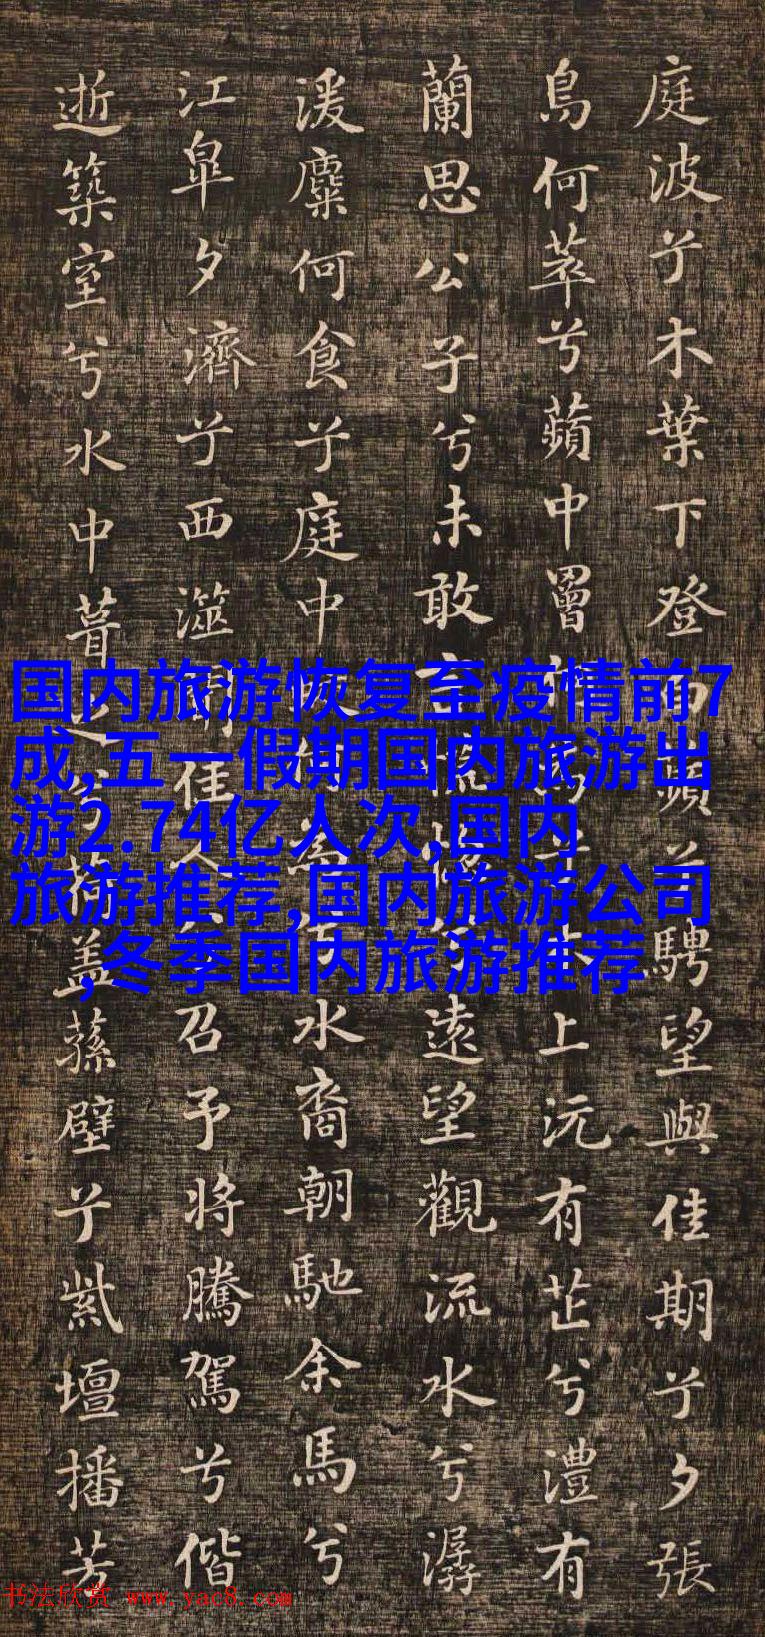 庭波兮木葉下登蘋兮騁望與佳期兮夕張
鳥何萃兮蘋中罾木上沅有芷兮澧有
蘭思公子兮未敢言遠望觀流水兮潺
湲麋何食兮庭中為兮水裔朝馳余馬兮
江皐夕濟兮西澨聞佳人兮召予將騰駕兮偕
逝築室兮水中葺之兮荷蓋蓀壁兮紫壇播芳
国内旅游恢复至疫情前7
成,五一假期国内旅游出
游2.74亿人次,国内
旅游推荐,国内旅游公司
,冬季国内旅游推荐
书法欣赏 www.yac8.com